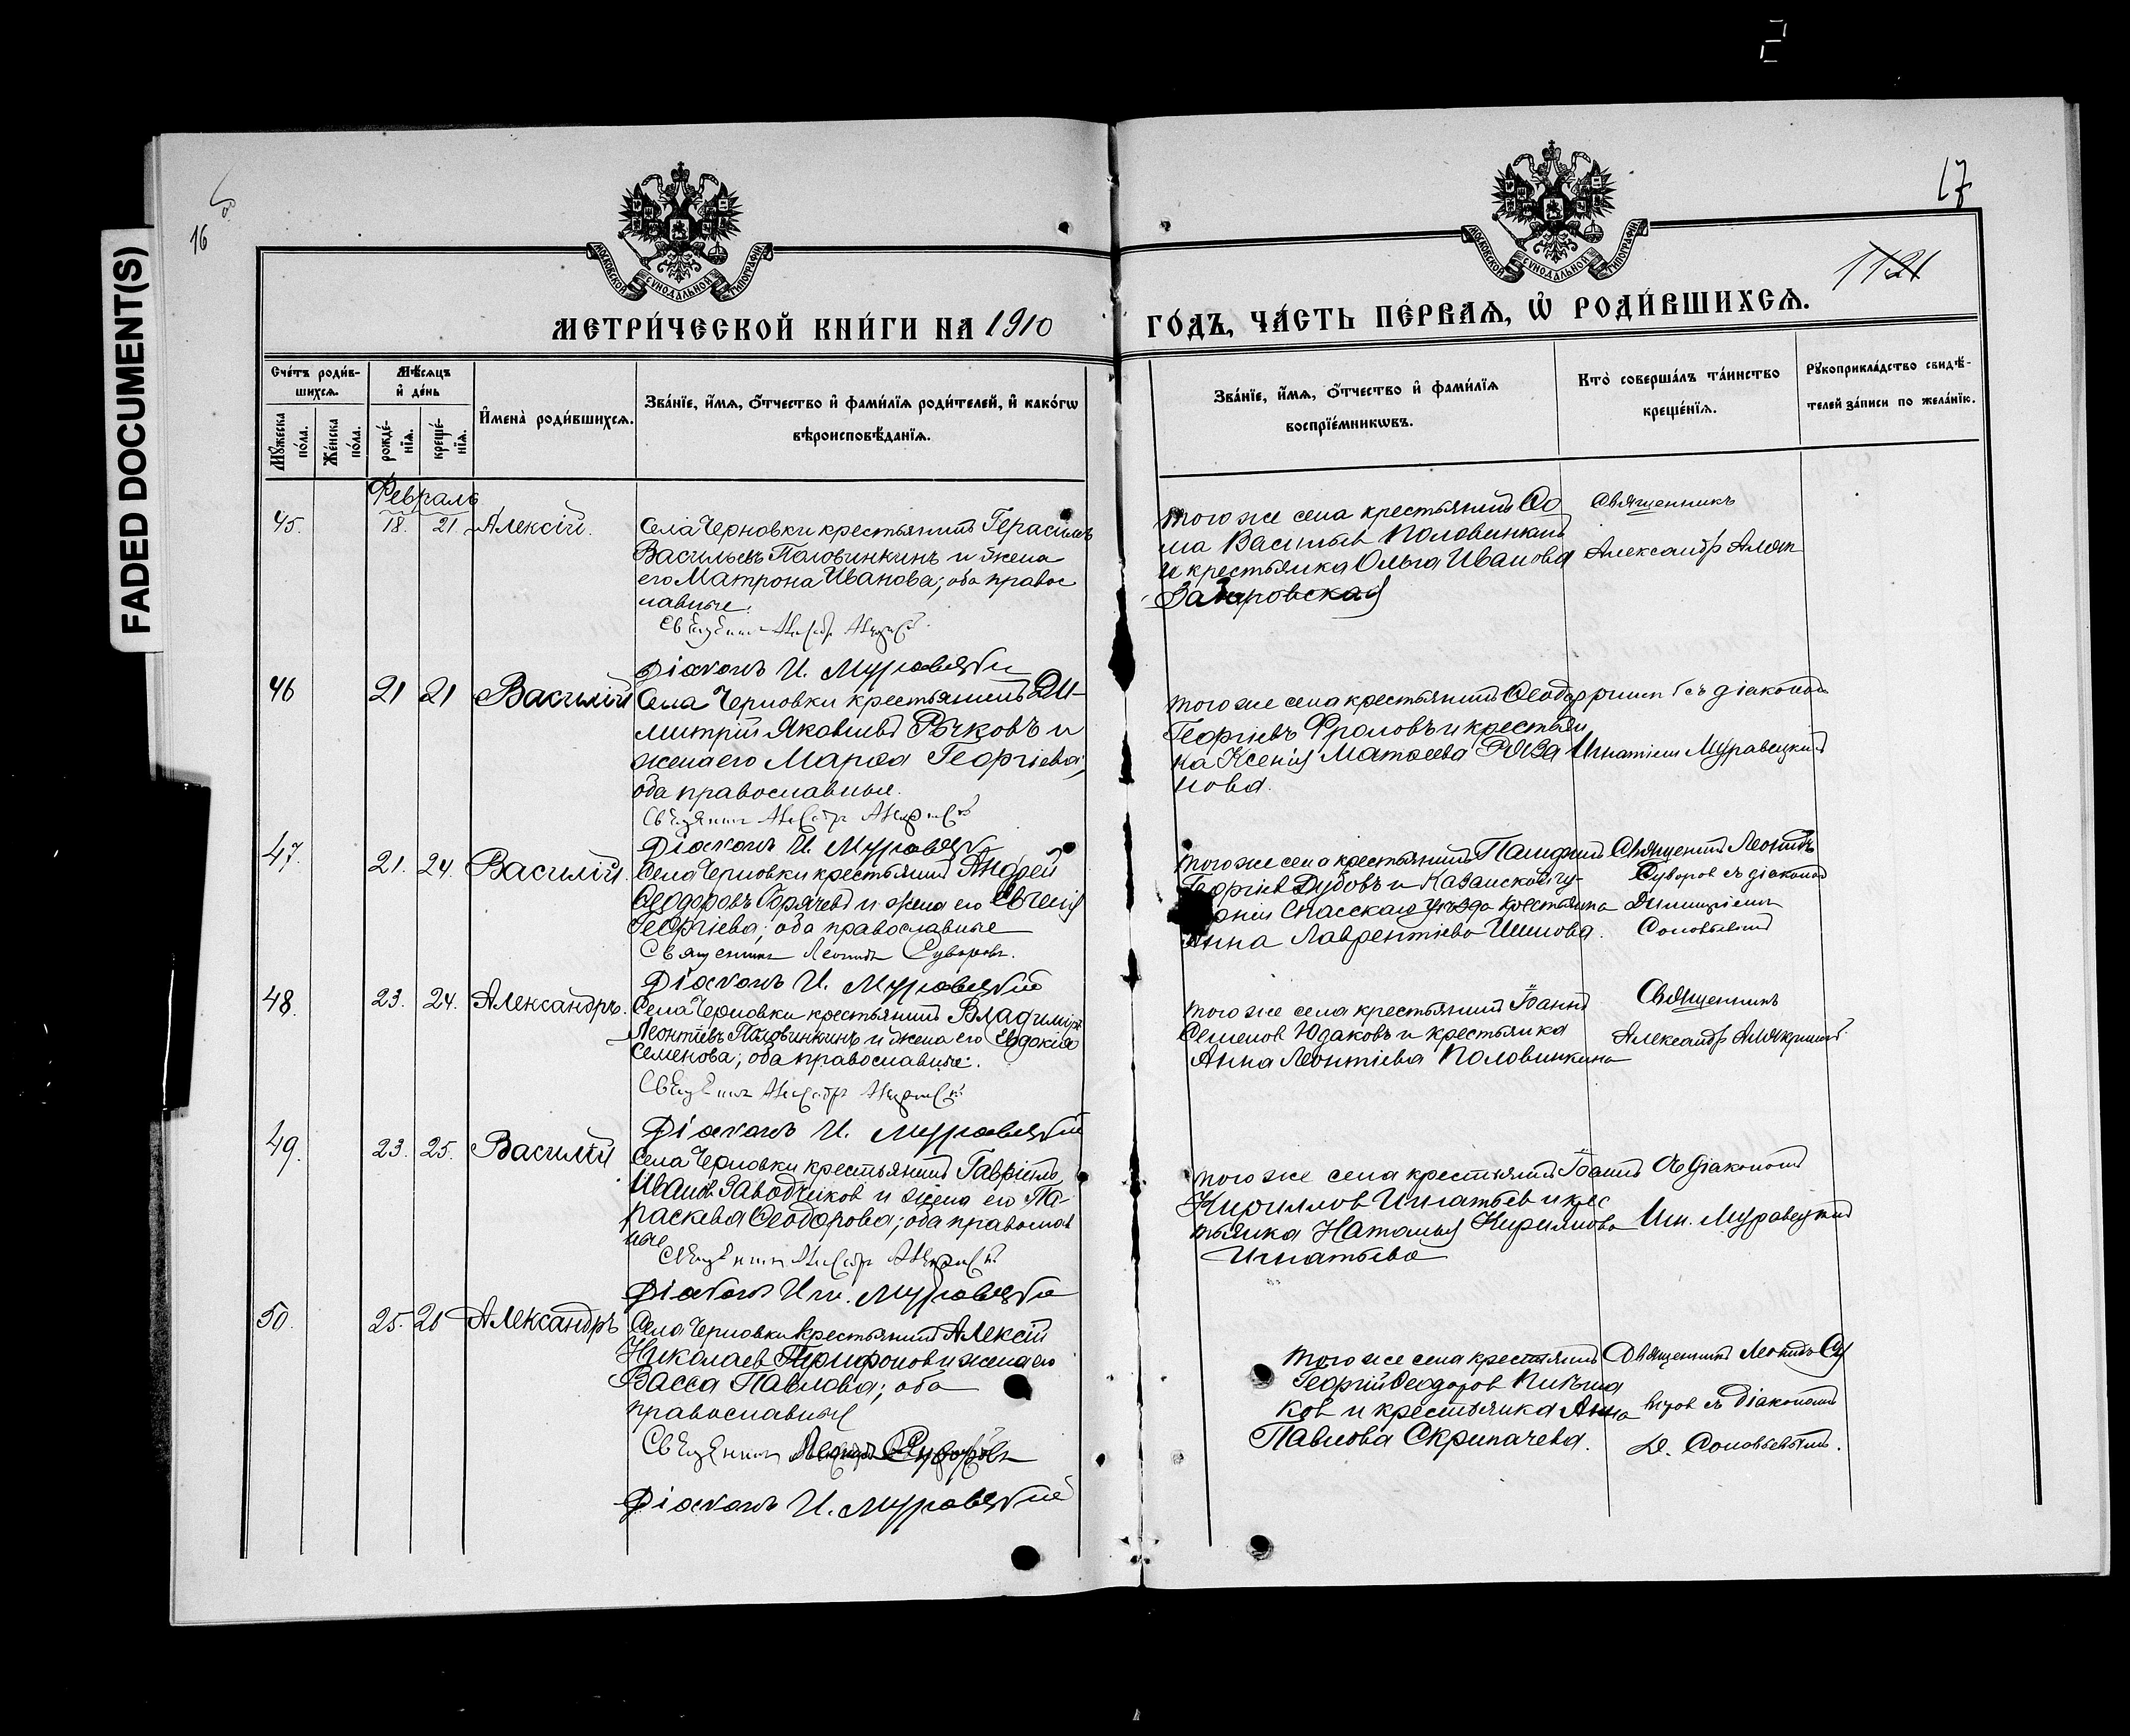 2
FADED DOCUMENT(S)
16
17
1121
МОСКОВСКОЙ СѴНОДАЛЬНОЙ ТИПОГРАФІИ
МОСКОВСКОЙ СѴНОДАЛЬНОЙ ТИПОГРАФІИ
МЕТРИ́ЧЕСКОЙ КНИ́ГИ НА 1910
ГО́ДЪ, ЧА́СТЬ ПЕ́РВАѦ, Ѡ РОДИ́ВШИХСѦ.
Сче́тъ роди́в-
шихся.
Мѣ́сяцъ
и де́нь
Мꙋ́жеска по́ла.
Же́нска по́ла.
рожде́-нїя.
креще́-нїя.
Имена̀ роди́вшихся.
Зва́нїе, и́мя, о́тчество и фами́лїя роди́телей, и како́гѡ
вѣроисповѣ́данїя.
Зва́нїе, и́мя, о́тчество и фами́лїя
воспрїе́мникѡвъ.
Кто̀ соверша́лъ та́инство
креще́нїя.
Рꙋкоприкла́дство свидѣ́-
телей за́писи по жела́нїю.
Февраль
45. 18. 21. Алексій.
Села Черновки крестьянинъ Герасимъ
Васильевъ Половинкинъ и жена
его Матрона Иванова; оба правос
лавные.
Діаконъ И. Муравецкій
того же села крестьянинъ Ѳо
ма Васильев Половинкинъ
и крестьянка Ольга Иванова
Священникъ
Александр
46 21 21 Василій
Села Черновки крестьянинъ Ди-
митрій Яковлевъ Рѣчковъ и
жена его Марѳа Георгіева;
оба православные.
Діаконъ И. Муравецкій
того же села крестьянинъ Ѳеодор
Георгіевъ Фроловъ и крестьян
ка Ксенія Матѳеева Ряза
нова.
съ діакономъ
Игнатіем Муравецким
47. 21. 24. Василій.
Села Черновки крестьянинъ Андрей
Ѳеодоровъ Горячевъ и жена его Евгенія
Георгіева; оба православные
Священникъ Леонидъ Суворовъ.
Діаконъ И. Муравецкій
того же села крестьянинъ
Георгіев Дубовъ и Казанской гу-
Спасскаго уѣзда крестьянка
Анна Лаврентіева Шилова.
Священникъ Леонидъ
Суворов съ діаконом
Димитріемъ
Соловьевымъ
48. 23. 24. Александръ.
Села Черновки крестьянинъ Владиміръ
Леонтіевъ Половинкинъ и жена его Евдокія
Семенова; оба православные.
Діаконъ И. Муравецкій
того же села крестьянинъ Іоаннъ
Семенов Юдаковъ и крестьянка
Анна Леонтіева Половинкина
Священникъ
Александр
49. 23. 25. Василій
Села Черновки крестьянинъ Гавріилъ
Иванов Заводчиков и жена его Па-
раскева Ѳеодорова; оба православ
ные
Діаконъ Игн. Муравецкій
того же села крестьянинъ Іоаннъ
Кириллов Игнатьев и крес
тьянка Наталья Кириллова
Игнатьева
съ діакономъ
Игн. Муравецким
50. 25. 26 Александръ
Села Черновки крестьянинъ Алексій
Николаев Трифонов и жена его
Васса Павлова; оба
православные
Священникъ Леонидъ Суворовъ
Діаконъ И. Муравецкій
того же села крестьянинъ
Георгій Ѳеодоров
ков и крестьянка Анна
Павлова Скрипачева.
Священникъ Леонидъ Су
воров съ діакономъ
Д. Соловьевымъ.